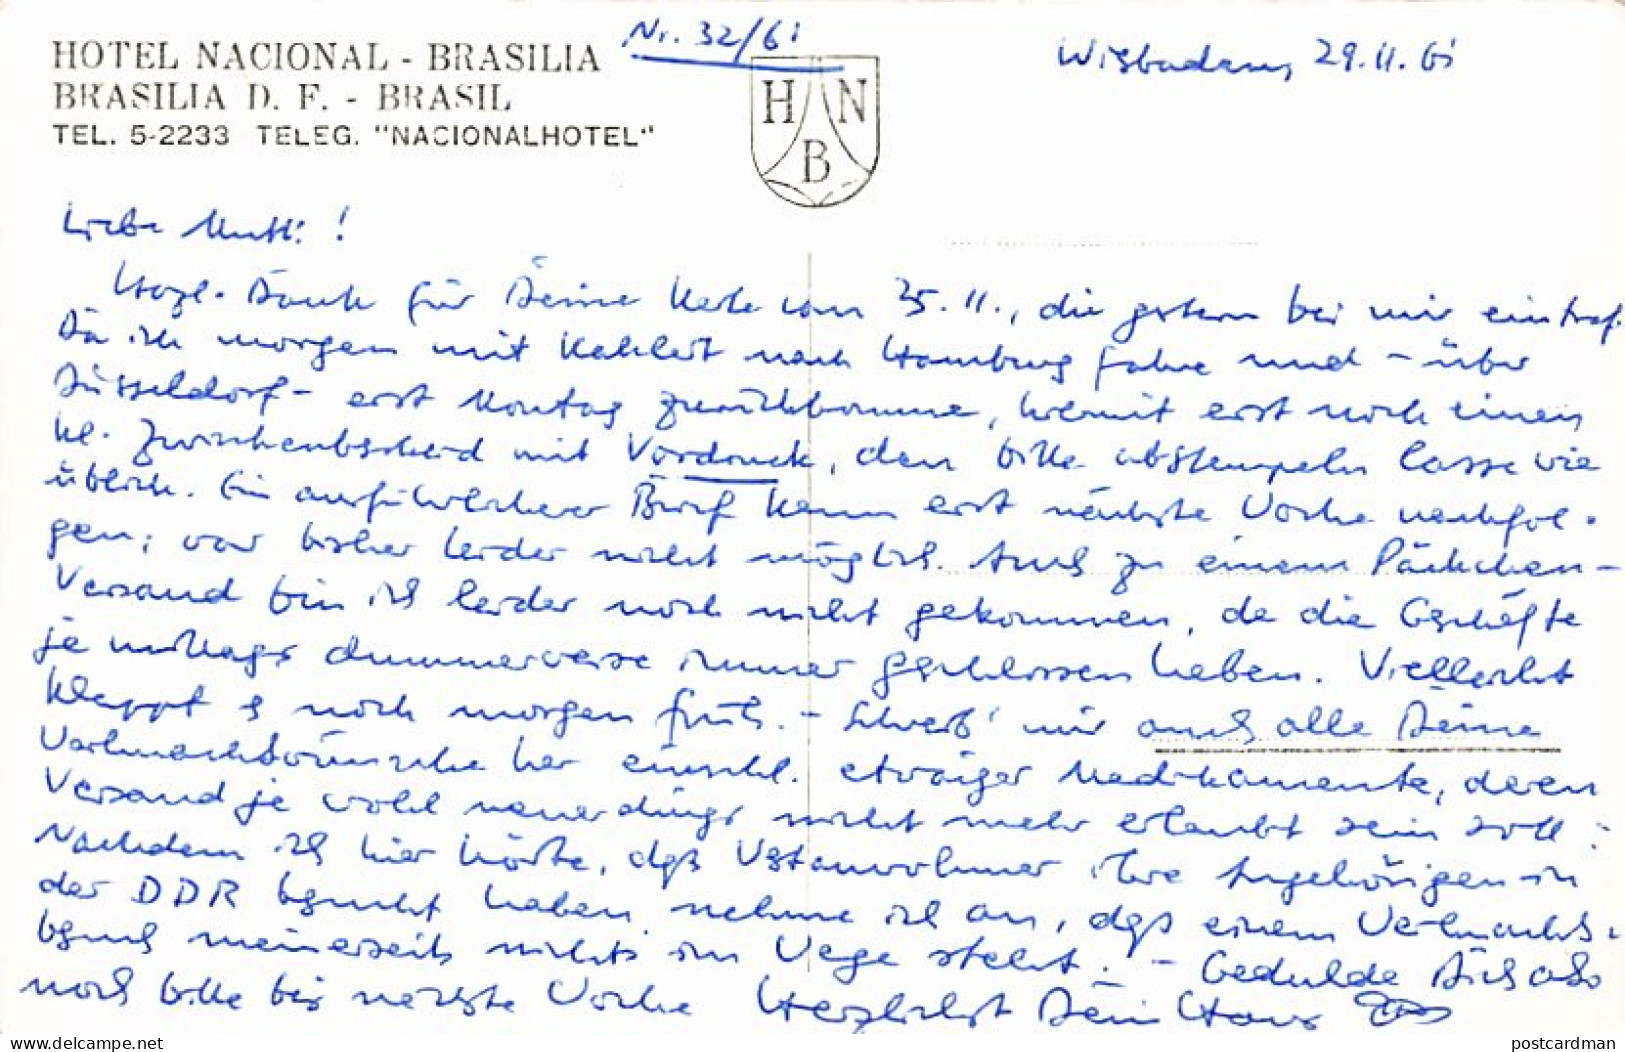 HOTEL NACIONAL - BRASILIA
BRASILIA D. F. - BRASIL
TEL. 5-2233 TELEG. "NACIONALHOTEL"
Nr. 32/61
H N B
Wiesbaden, 29.11.61
Liebe Mutti!
Herzl. Dank für Deine Karte vom 25.11., die gestern bei mir eintraf.
Da ich morgen mit nach Hamburg fahre und - über
Düsseldorf - erst Montag zurückkomme, hiermit erst noch einen
kl. Zwischenbescheid mit Vordruck, den bitte abstempeln lasse wie
üblich. Ein ausführlicher Brief kann erst nächste Woche nachfol-
gen; war bisher leider nicht möglich. Auch zu einem Päckchen-
Versand bin ich leider noch nicht gekommen, da die Geschäfte
je mittags dummerweise immer geschlossen haben. Vielleicht
klappt es noch morgen früh. - Schreib' mir auch alle Deine
Weihnachtswünsche her einschl. etwaiger Medikamente, deren
Versand je wohl neuerdings nicht mehr erlaubt sein soll.
Nachdem ich hier hörte, dass Westanwohner ihre Angehörigen in
der DDR besucht haben, nehme ich an, dass einem Weihnachts-
besuch meinerseits nichts im Wege steht. - Gedulde Dich also
noch bitte bis nächste Woche Herzlichst Dein Hans
delcampe.net
postcardman